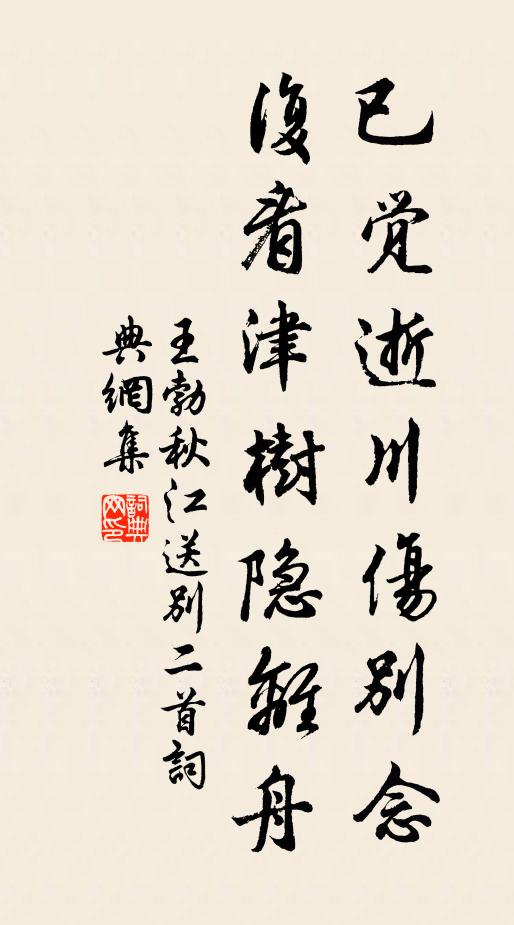 已觉逝川傷别念
復看津樹隐離舟
王勃秋江送别二首詞
典網集
詞典网印